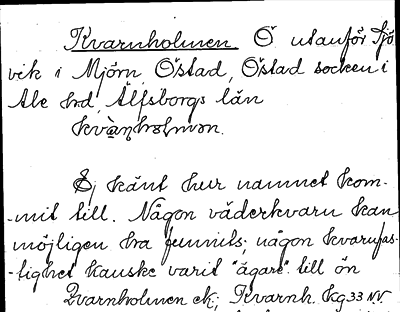 Kvarnholmen. Ö utanför Sjö
vik i Mjörn, Östad, Östad socken i
Ale hd, Älfsborgs län
kvà̱ṇhɔlmən.
Ej känt hur namnet kom-
-mit till. Någon väderkvarn kan
möjligen ha funnits; någon kvarnfas-
-tighet kanske varit "ägare" till ön
Qvarnholmen ek; Kvarnh. Kg 33 NV